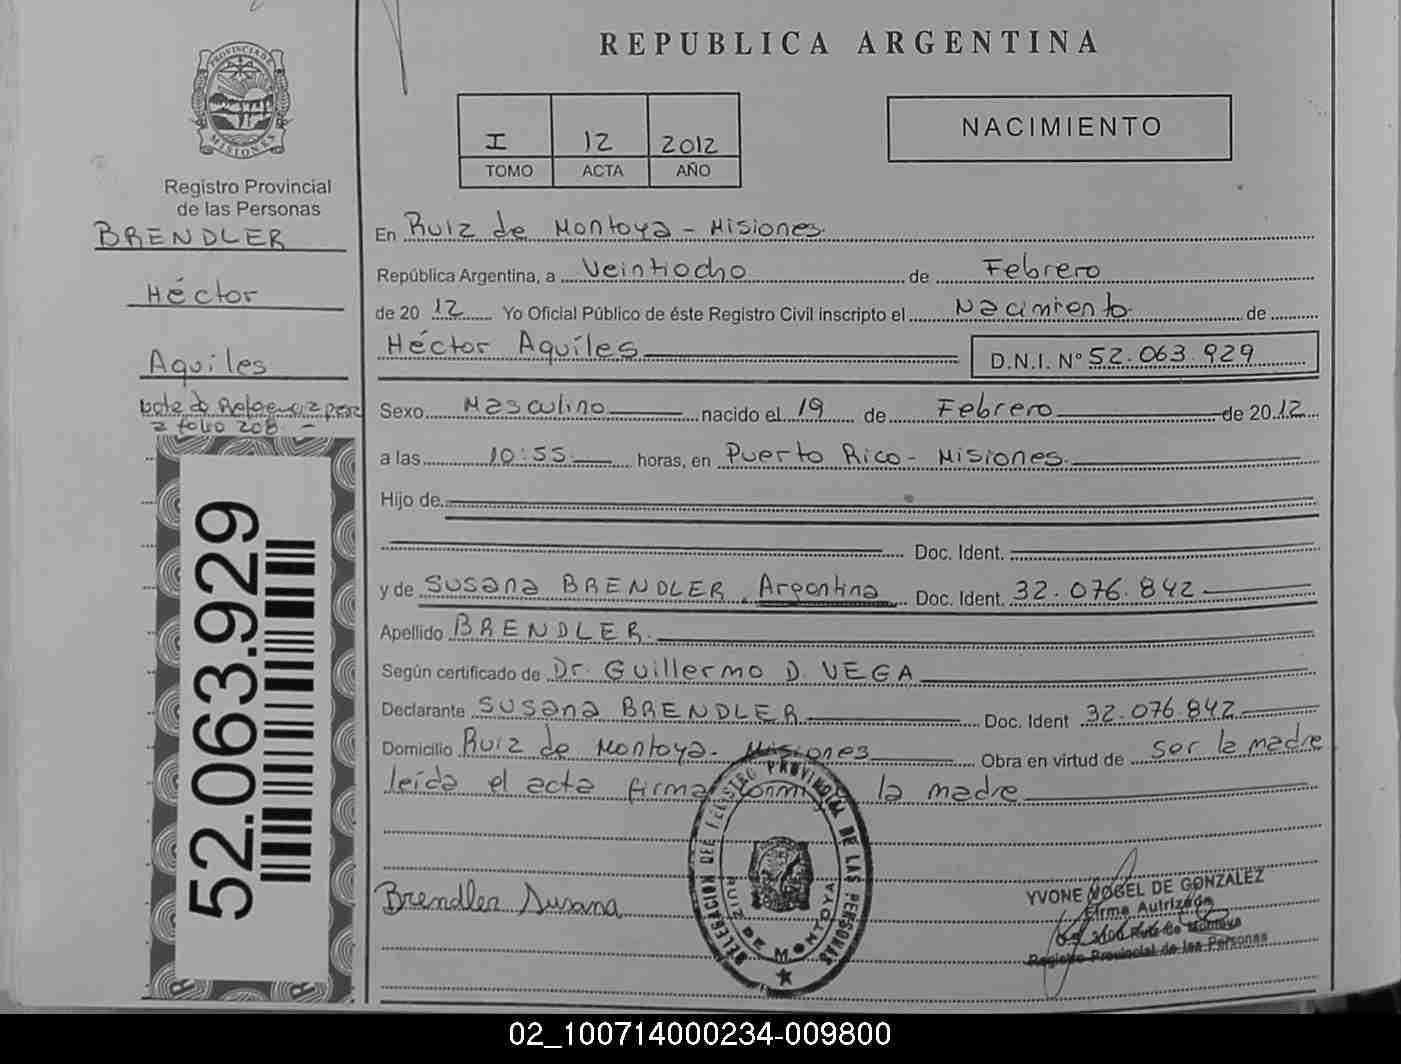 REPUBLICA ARGENTINA
PROVINCIA DE
MISIONES
Registro Provincial
de las Personas
BRENDLER
Héctor
Aquiles
I 12 2012
TOMO ACTA AÑO
NACIMIENTO
En Ruiz de Montoya - Misiones.
República Argentina, a Veintiocho de Febrero
de 20 12 Yo Oficial Público de éste Registro Civil inscripto el Nacimiento de
Héctor Aquíles D.N.I. Nº 52.063.929
Sexo Masculino nacido el 19 de Febrero de 20.12
a las 10:55 horas, en Puerto Rico - Misiones.
Hijo de
Doc. Ident.
y de Susana BRENDLER, Argentina Doc. Ident. 32.076.842
Apellido BRENDLER.
Según certificado de Dr. Guillermo D. VEGA
Declarante Susana BRENDLER Doc. Ident 32.076.842
Domicilio Ruiz de Montoya - Misiones Obra en virtud de ser la madre
leída el acta firma la madre
a folio 208. -
52.063.929
Brendler Susana
DELEGACION DEL REGISTRO PROVINCIAL DE LAS PERSONAS
RUIZ DE MONTOYA
YVONE VOGEL DE GONZALEZ
Firma Autrizada
Ruiz de Montoya
Registro Provincial de las Personas
02_100714000234-009800